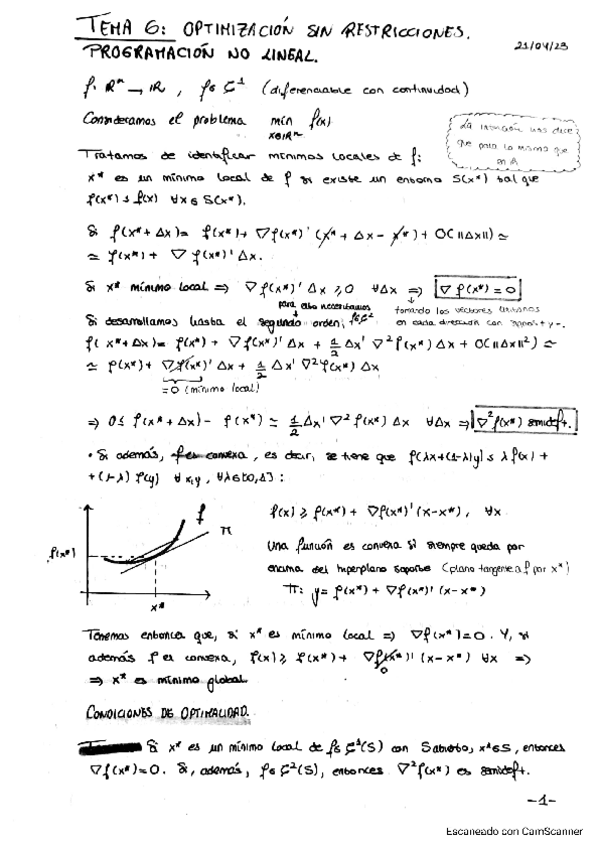 TEMA 6: OPTIMIZACIÓN SIN RESTRICCIONES.
PROGRAMACIÓN NO LINEAL.
21/04/23
f: ℝⁿ → ℝ , f∈ C¹ (diferenciable con continuidad)
Consideramos el problema min f(x)
x∈ℝⁿ
La intuición nos dice
que pasa lo mismo que
en ℝ
Tratamos de identificar mínimos locales de f:
x* es un mínimo local de f si existe un entorno S(x*) tal que
f(x*) ≤ f(x) ∀x∈S(x*).
Si f(x*+Δx)= f(x*)+ ∇f(x*)'(x*+Δx-x*) + O(||Δx||) ≃
≃ f(x*)+ ∇f(x*)'Δx.
Si x* mínimo local ⇒ ∇f(x*)'Δx ≥0 ∀Δx ⇒ ∇f(x*)=0
para ello necesitamos f∈C²
tomando los vectores unitarios
en cada dirección con signos + y -.
Si desarrollamos hasta el segundo orden;
f(x*+Δx)= f(x*) + ∇f(x*)'Δx + 1/2 Δx'∇²f(x*)Δx + O(||Δx||²) ≃
≃ f(x*)+ ∇f(x*)'Δx + 1/2 Δx'∇²f(x*)Δx
=0 (mínimo local)
⇒ 0≤ f(x*+Δx)- f(x*) ≃ 1/2 Δx'∇²f(x*)Δx ∀Δx ⇒ ∇²f(x*) semideft.
• Si además, f es convexa, es decir, se tiene que f(λx+(1-λ)y) ≤ λf(x)+
+(1-λ)f(y) ∀x,y, ∀λ∈[0,1]:
f
π
f(x*)
x*
f(x) ≥ f(x*) + ∇f(x*)'(x-x*), ∀x
Una función es convexa si siempre queda por
encima del hiperplano soporte (plano tangente a f por x*)
π: y= f(x*) + ∇f(x*)'(x-x*)
Tenemos entonces que, si x* es mínimo local ⇒ ∇f(x*)=0. Y, si
además f es convexa, f(x) ≥ f(x*)+ ∇f(x*)'(x-x*) ∀x ⇒
0
⇒ x* es mínimo global
CONDICIONES DE OPTIMALIDAD.
Si x* es un mínimo local de f∈C¹(S) con S abierto, x*∈S, entonces
∇f(x*)=0. Si, además, f∈C²(S), entonces ∇²f(x*) es semideft.
-1-
Escaneado con CamScanner